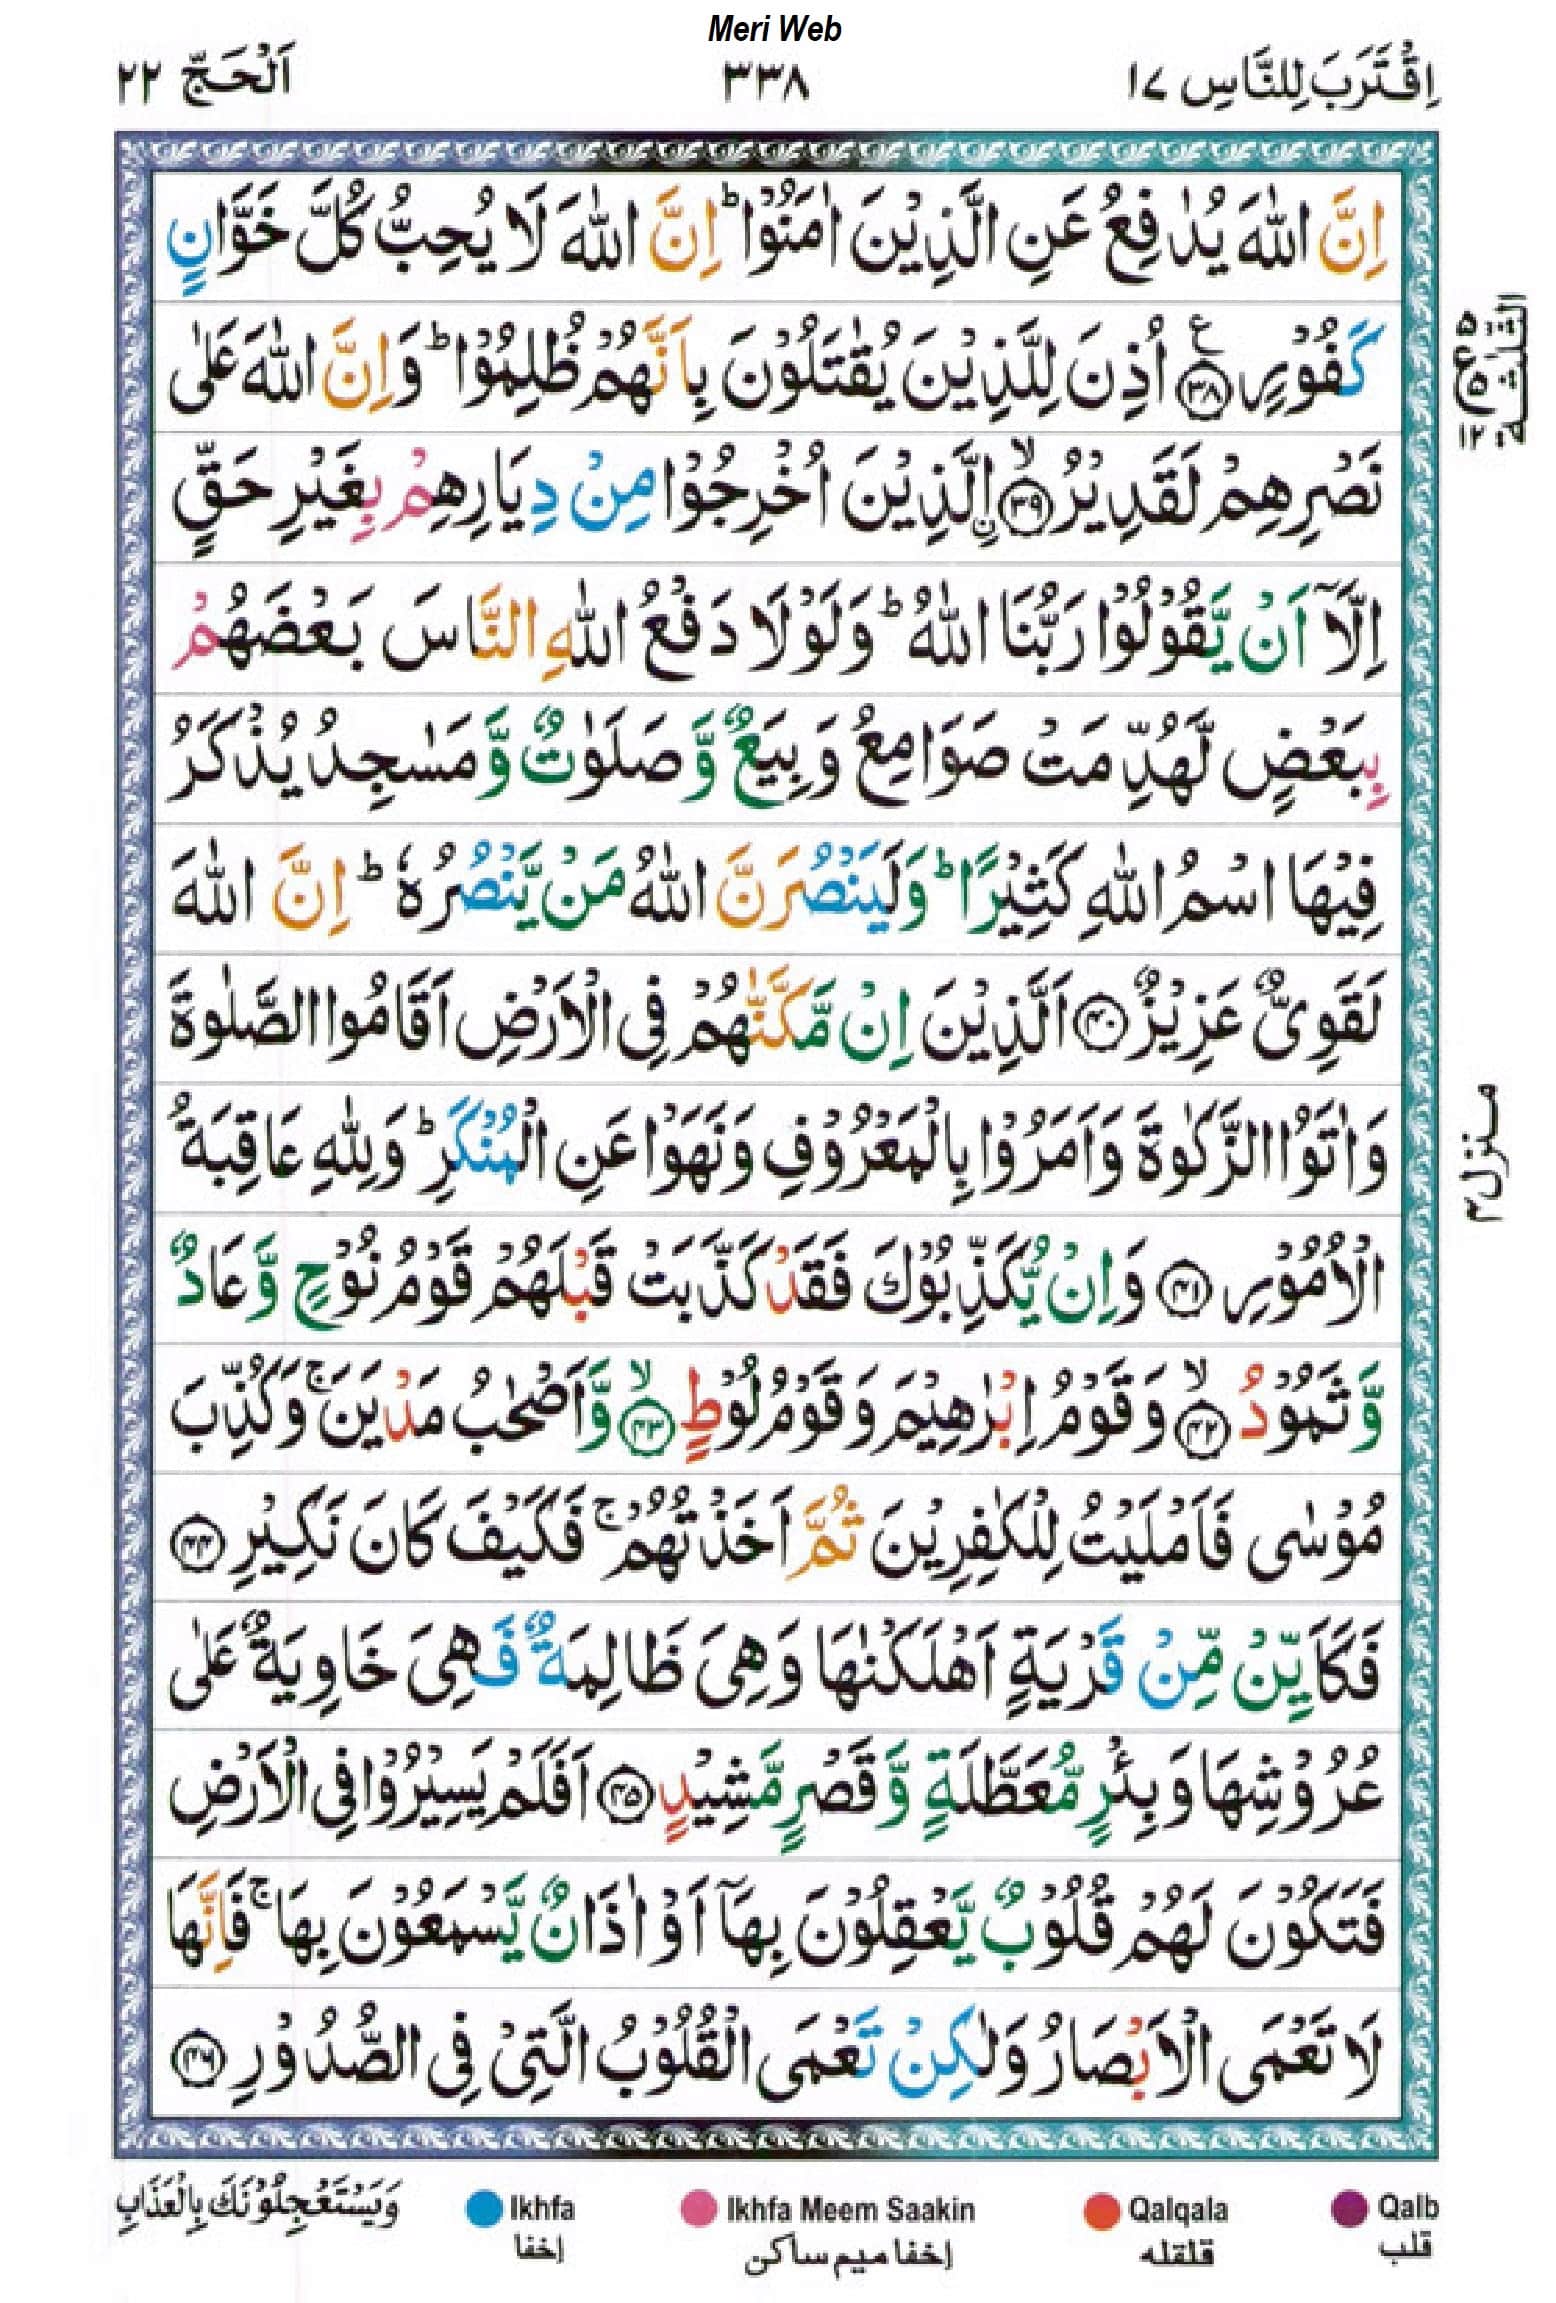 Meri Web
اِقْتَرَبَ لِلنَّاسِ ۱۷
۳۳۸
اَلْحَجّ ۲۲
اِنَّ اللّٰهَ یُدٰفِعُ عَنِ الَّذِیْنَ اٰمَنُوْا ؕ اِنَّ اللّٰهَ لَا یُحِبُّ كُلَّ خَوَّانٍ
كَفُوْرٍ ۠﴿۳۸﴾ اُذِنَ لِلَّذِیْنَ یُقٰتَلُوْنَ بِاَنَّهُمْ ظُلِمُوْا ؕ وَاِنَّ اللّٰهَ عَلٰی
نَصْرِهِمْ لَقَدِیْرُ ۙ﴿۳۹﴾ ۨالَّذِیْنَ اُخْرِجُوْا مِنْ دِیَارِهِمْ بِغَیْرِ حَقٍّ
اِلَّاۤ اَنْ یَّقُوْلُوْا رَبُّنَا اللّٰهُ ؕ وَلَوْلَا دَفْعُ اللّٰهِ النَّاسَ بَعْضَهُمْ
بِبَعْضٍ لَّهُدِّمَتْ صَوَامِعُ وَبِیَعٌ وَّصَلَوٰتٌ وَّمَسٰجِدُ یُذْكَرُ
فِیْهَا اسْمُ اللّٰهِ كَثِیْرًا ؕ وَلَیَنْصُرَنَّ اللّٰهُ مَنْ یَّنْصُرُهٗ ؕ اِنَّ اللّٰهَ
لَقَوِیٌّ عَزِیْزٌ ﴿۴۰﴾ اَلَّذِیْنَ اِنْ مَّكَّنّٰهُمْ فِی الْاَرْضِ اَقَامُوا الصَّلٰوةَ
وَاٰتَوُا الزَّكٰوةَ وَاَمَرُوْا بِالْمَعْرُوْفِ وَنَهَوْا عَنِ الْمُنْكَرِ ؕ وَلِلّٰهِ عَاقِبَةُ
الْاُمُوْرِ ﴿۴۱﴾ وَاِنْ یُّكَذِّبُوْكَ فَقَدْ كَذَّبَتْ قَبْلَهُمْ قَوْمُ نُوْحٍ وَّعَادٌ
وَّثَمُوْدُ ۙ﴿۴۲﴾ وَقَوْمُ اِبْرٰهِیْمَ وَقَوْمُ لُوْطٍ ۙ﴿۴۳﴾ وَّاَصْحٰبُ مَدْیَنَ ۚ وَكُذِّبَ
مُوْسٰی فَاَمْلَیْتُ لِلْكٰفِرِیْنَ ثُمَّ اَخَذْتُهُمْ ۚ فَكَیْفَ كَانَ نَكِیْرِ ﴿۴۴﴾
فَكَاَیِّنْ مِّنْ قَرْیَةٍ اَهْلَكْنٰهَا وَهِیَ ظَالِمَةٌ فَهِیَ خَاوِیَةٌ عَلٰی
عُرُوْشِهَا وَبِئْرٍ مُّعَطَّلَةٍ وَّقَصْرٍ مَّشِیْدٍ ﴿۴۵﴾ اَفَلَمْ یَسِیْرُوْا فِی الْاَرْضِ
فَتَكُوْنَ لَهُمْ قُلُوْبٌ یَّعْقِلُوْنَ بِهَاۤ اَوْ اٰذَانٌ یَّسْمَعُوْنَ بِهَا ۚ فَاِنَّهَا
لَا تَعْمَی الْاَبْصَارُ وَلٰكِنْ تَعْمَی الْقُلُوْبُ الَّتِیْ فِی الصُّدُوْرِ ﴿۴۶﴾
الثلٰثة
۵
ع
۵
۱۲
منزل ۴
وَیَسْتَعْجِلُوْنَكَ بِالْعَذَابِ
Ikhfa
إخفا
Ikhfa Meem Saakin
إخفا میم ساکن
Qalqala
قلقله
Qalb
قلب